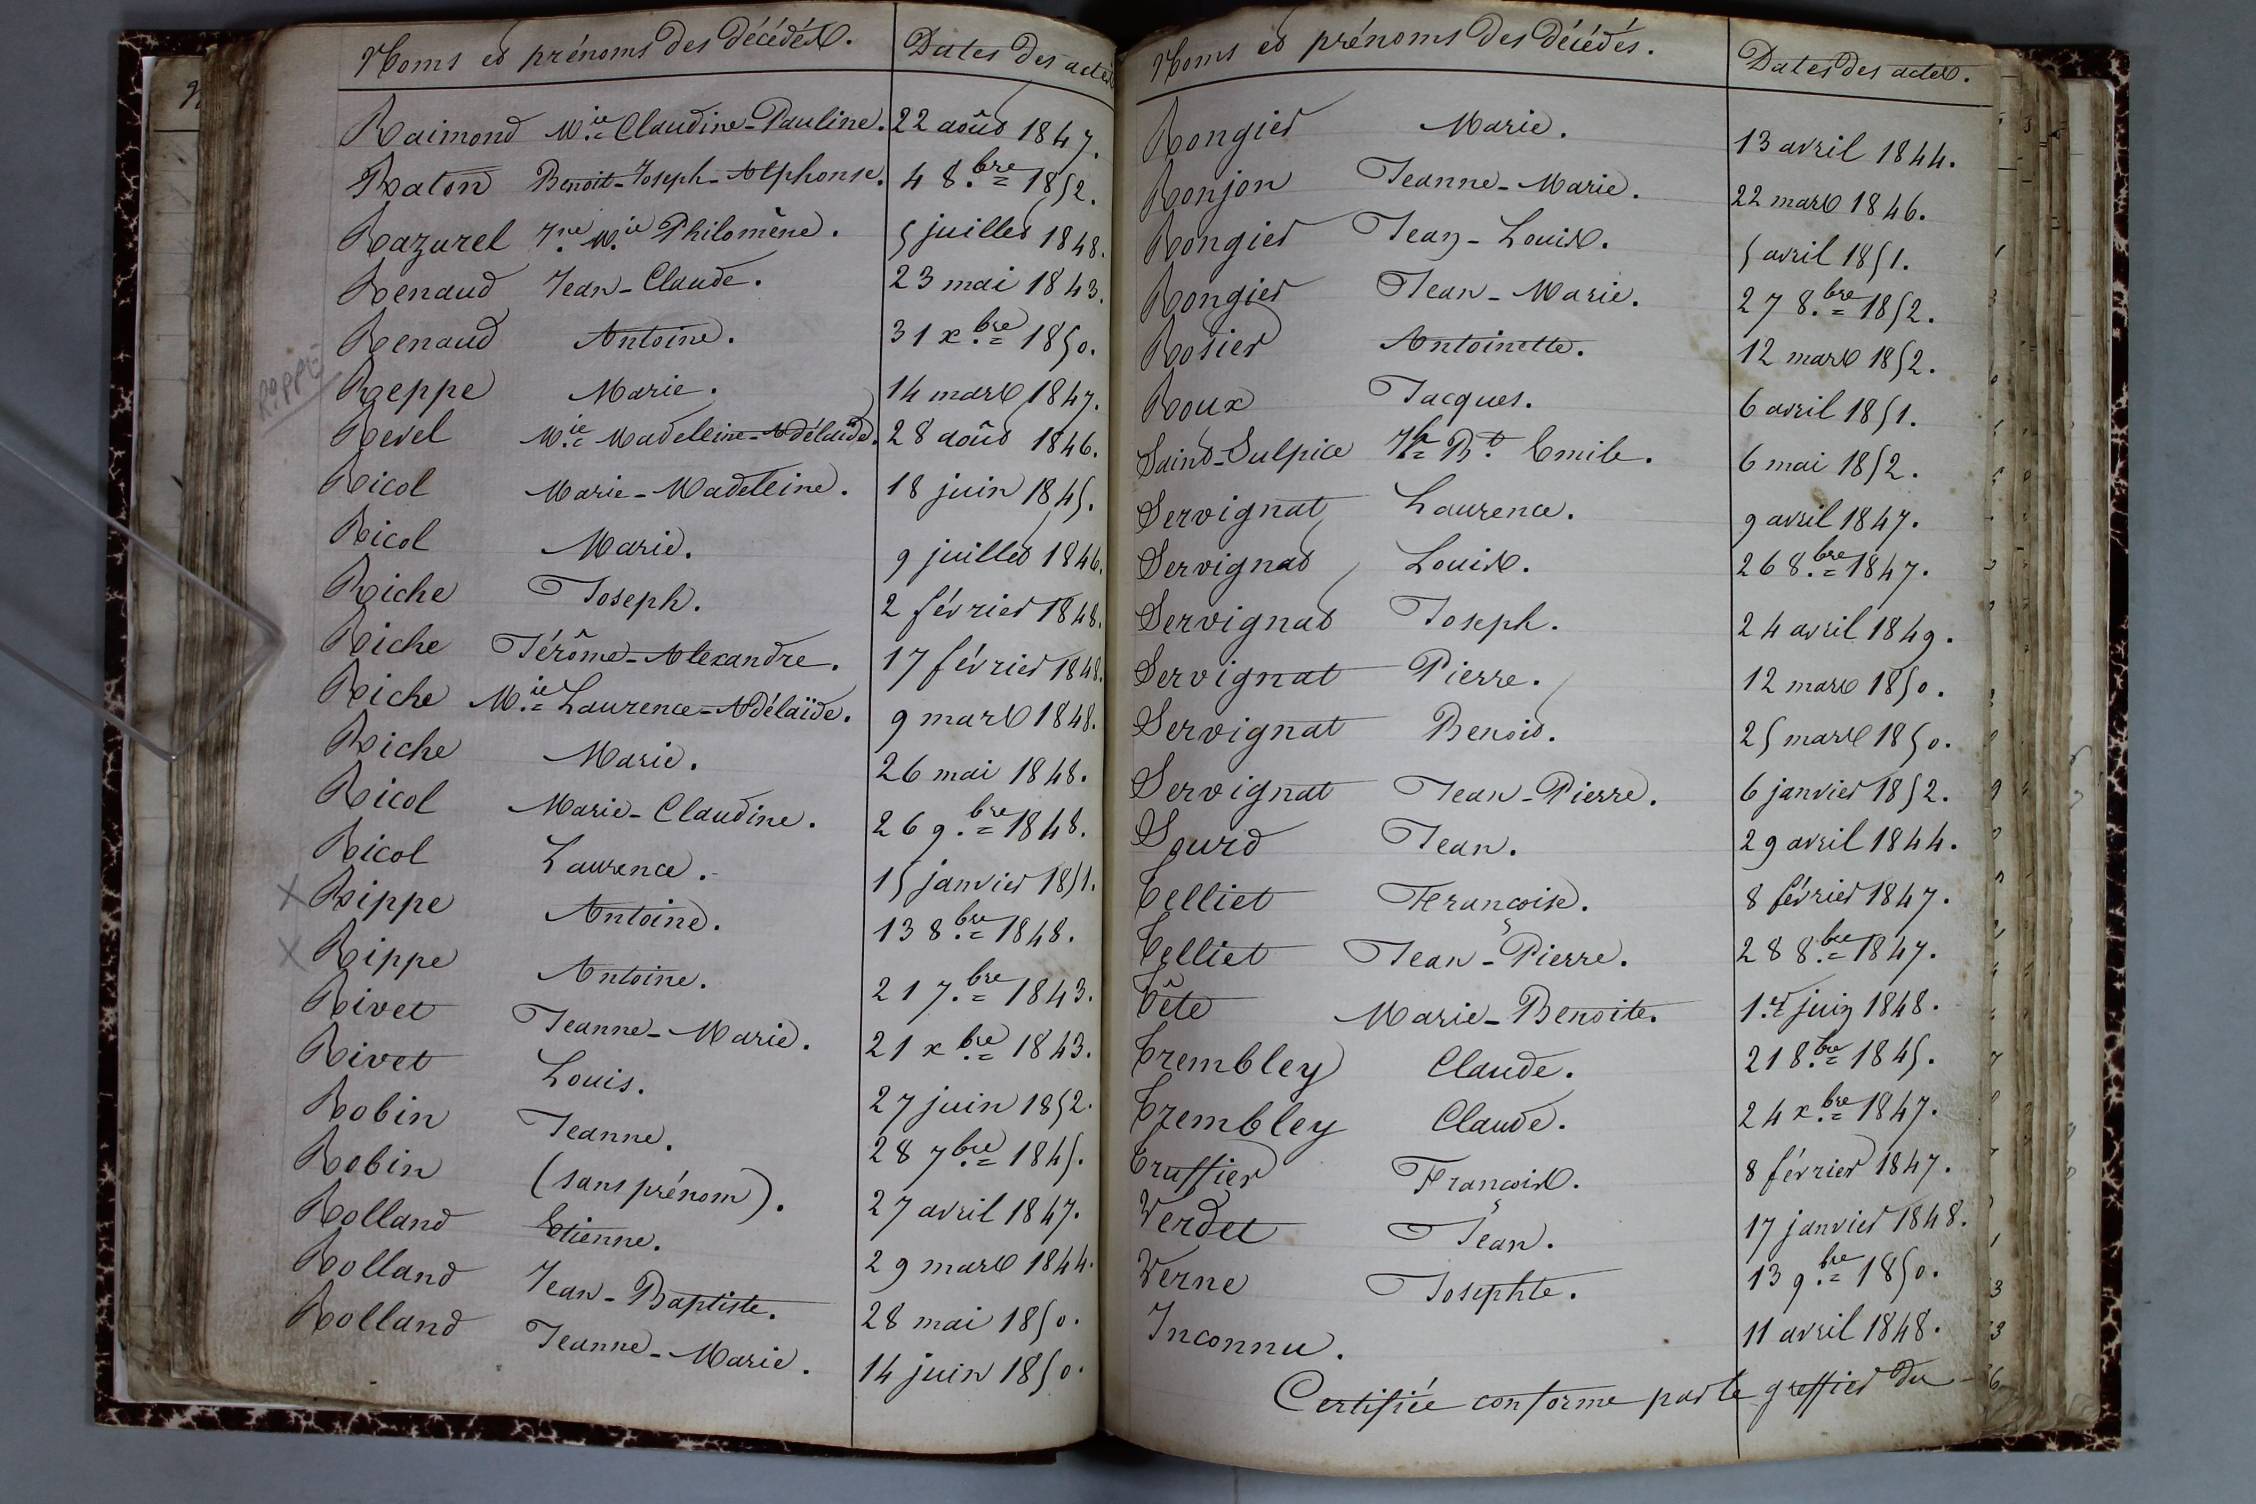 Noms et prénoms des décédés. Dates des actes
Raimond M.ie Claudine-Pauline. 22 août 1847.
Raton Benoit-Joseph-Alphonse. 4 8.bre 1852.
Razurel J.ne M.ie Philomène. 5 juillet 1848.
Renaud Jean-Claude. 23 mai 1843.
Renaud Antoine. 31 x.bre 1850.
Reppe Marie. 14 mars 1847.
Revel M.ie Madeleine-Adélaïde. 28 août 1846.
Ricol Marie-Madeleine. 18 juin 1845.
Ricol Marie. 9 juillet 1846.
Riche Joseph. 2 février 1848.
Riche Jérôme-Alexandre. 17 février 1848.
Riche M.ie Laurence-Adélaïde. 9 mars 1848.
Riche Marie. 26 mai 1848.
Ricol Marie-Claudine. 26 9.bre 1848.
Ricol Laurence. 15 janvier 1851.
X Rippe Antoine. 13 8.bre 1848.
X Rippe Antoine. 21 7.bre 1843.
Rivet Jeanne-Marie. 21 x.bre 1843.
Rivet Louis. 27 juin 1852.
Robin Jeanne. 28 7.bre 1845.
Robin (sans prénom). 27 avril 1847.
Rolland Etienne. 29 mars 1844.
Rolland Jean-Baptiste. 28 mai 1850.
Rolland Jeanne-Marie. 14 juin 1850.
Noms et prénoms des décédés. Dates des actes.
Rongier Marie. 13 avril 1844.
Ronjon Jeanne-Marie. 22 mars 1846.
Rongier Jean-Louis. 5 avril 1851.
Rongier Jean-Marie. 27 8.bre 1852.
Rosier Antoinette. 12 mars 1852.
Roux Jacques. 6 avril 1851.
Saint-Sulpice Jh Bt. Emile. 6 mai 1852.
Servignat Laurence. 9 avril 1847.
Servignat Louis. 26 8.bre 1847.
Servignat Joseph. 24 avril 1849.
Servignat Pierre. 12 mars 1850.
Servignat Benoit. 25 mars 1850.
Servignat Jean-Pierre. 6 janvier 1852.
Sourd Jean. 29 avril 1844.
Telliet Françoise. 8 février 1847.
Telliet Jean-Pierre. 28 8.bre 1847.
Tête Marie-Benoite. 1.er juin 1848.
Trembley Claude. 21 8.bre 1845.
Trembley Claude. 24 x.bre 1847.
Truffier François. 8 février 1847.
Verdet Jean. 17 janvier 1848.
Verne Josephte. 13 9.bre 1850.
Inconnu. 11 avril 1848.
Certifiée conforme par le greffier du